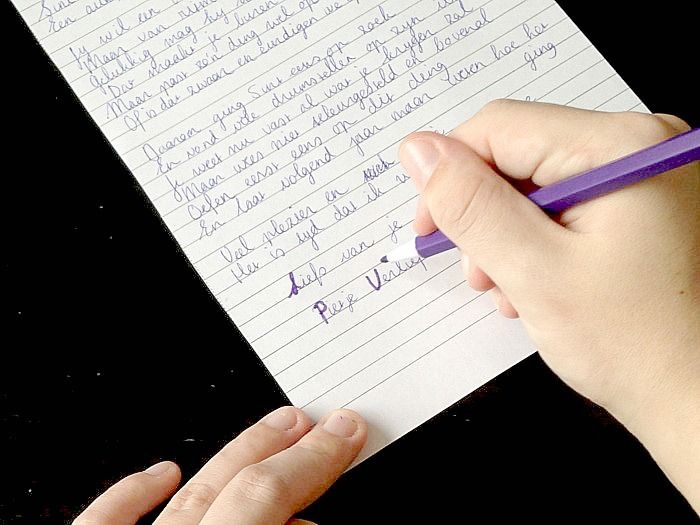 Sint
Een
Jij wil een
Maar van ruim
gelukkig mag hij
Dat maakt je buren
Maar past zo'n ding wel op
Of is dat zwaar en eindigen we
Daarom ging Sint eens op zoek
En vond vele drumstellen op zijn
Je weet nu vast al wat je krijgen zal
Maar wees niet teleurgesteld en bovenal
Oefen eerst eens op dit ding
En laat volgend jaar maar weten hoe het ging
Veel plezier en
Het is tijd dat ik
Liefs van je
Pietje Verlief